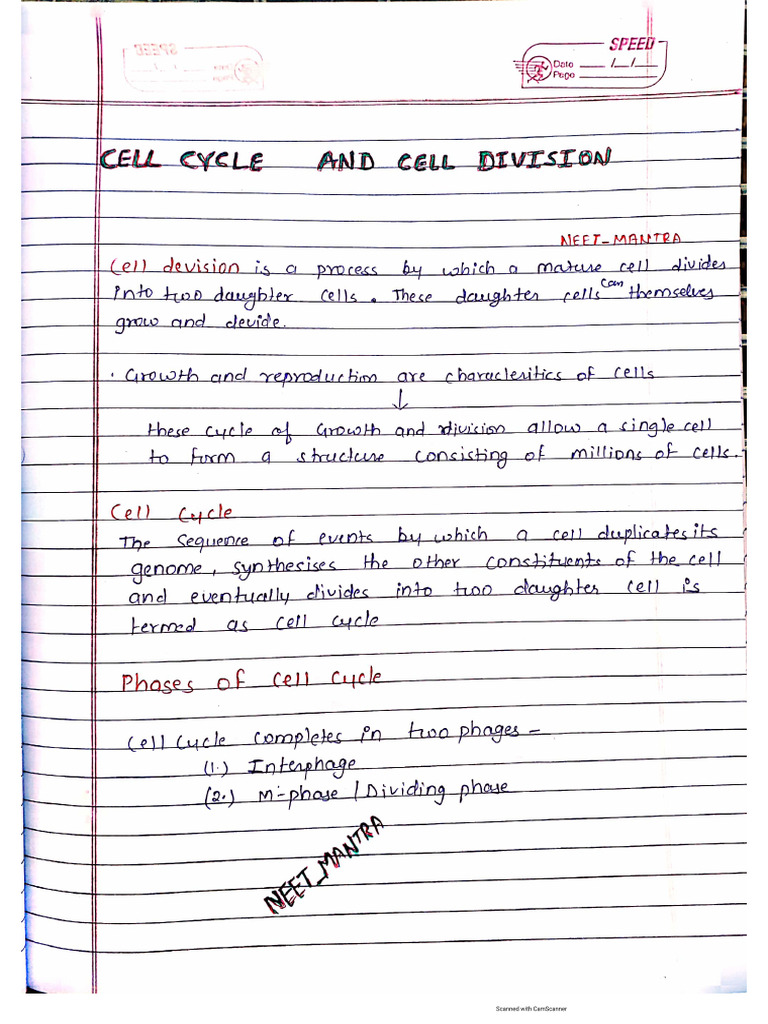 SPEED
Date / /
Page
CELL CYCLE AND CELL DIVISION
NEET-MANTRA
Cell devision is a process by which a mature cell divides
into two daughter cells. These daughter cells can themselves
grow and devide.
· Growth and reproduction are characteritics of cells
↓
these cycle of Growth and division allow a single cell
to form a structure consisting of millions of cells.
Cell Cycle
The sequence of events by which a cell duplicates its
genome, synthesises the other constituents of the cell
and eventually divides into two daughter cell is
termed as cell cycle
Phases of Cell Cycle
Cell Cycle completes in two phages -
(1.) Interphage
(2.) M-phase / Dividing phase
NEET_MANTRA
Scanned with CamScanner